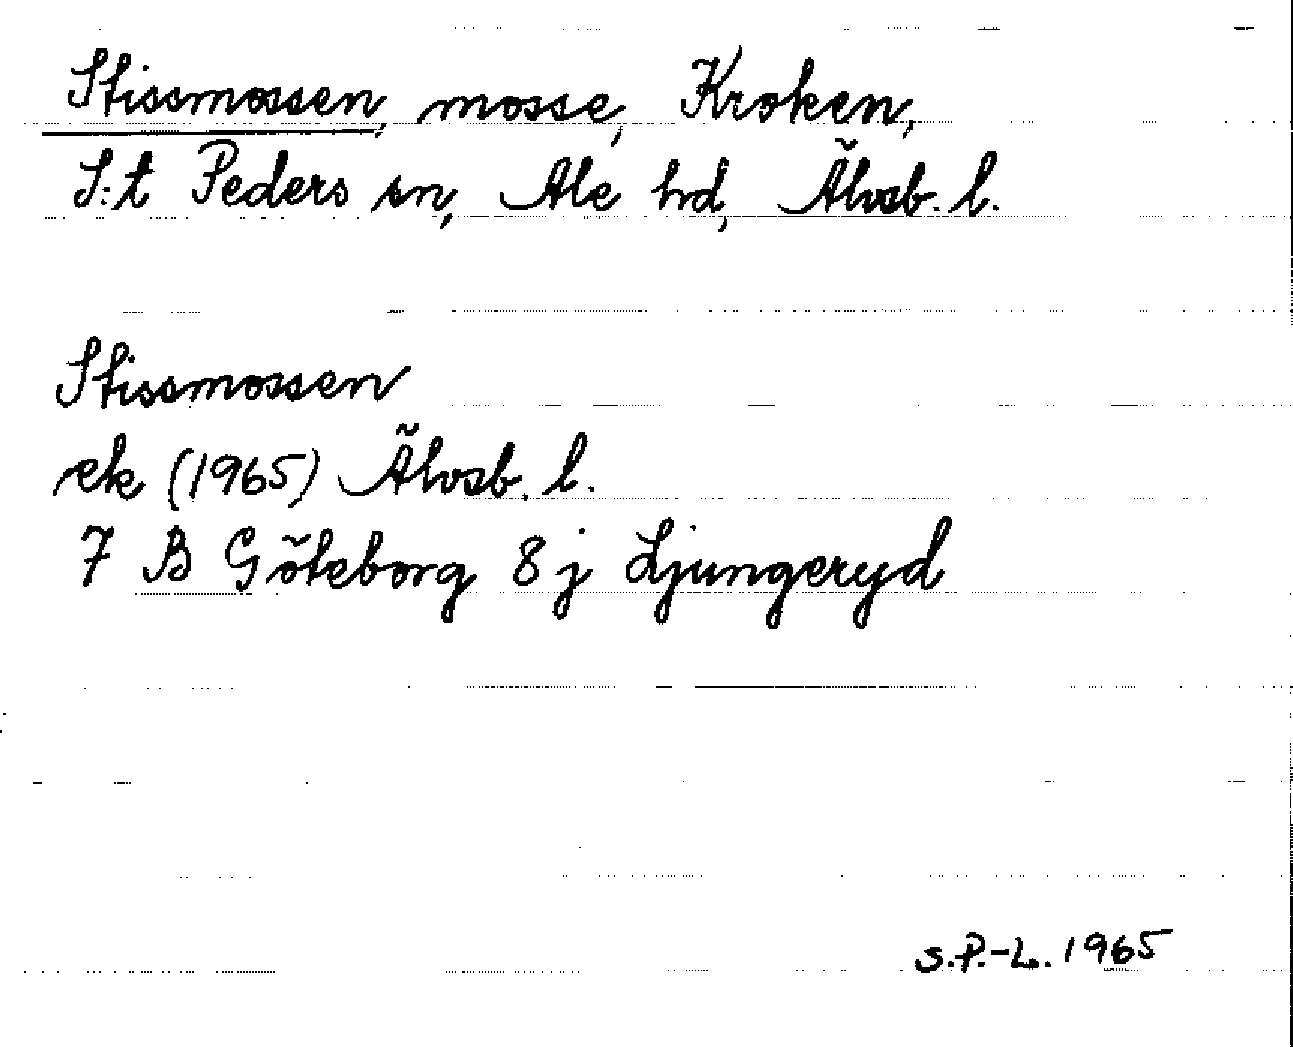 Stissmossen, mosse, Kroken,
S:t Peders sn, Ale hd, Älvsb. l.
Stissmossen
ek (1965) Älvsb. l.
7 B Göteborg 8 j Ljungeryd
S.P.-L. 1965